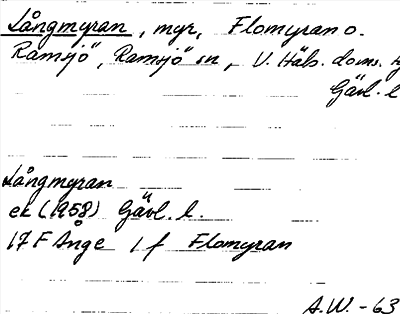 Långmyran, myr, Flomyran o.
Ramsjö, Ramsjö sn, V. Häls. doms.
Gävl. l
Långmyran
ek (1958) Gävl. l.
17 F Ånge 1 f Flomyran
A.W. - 63